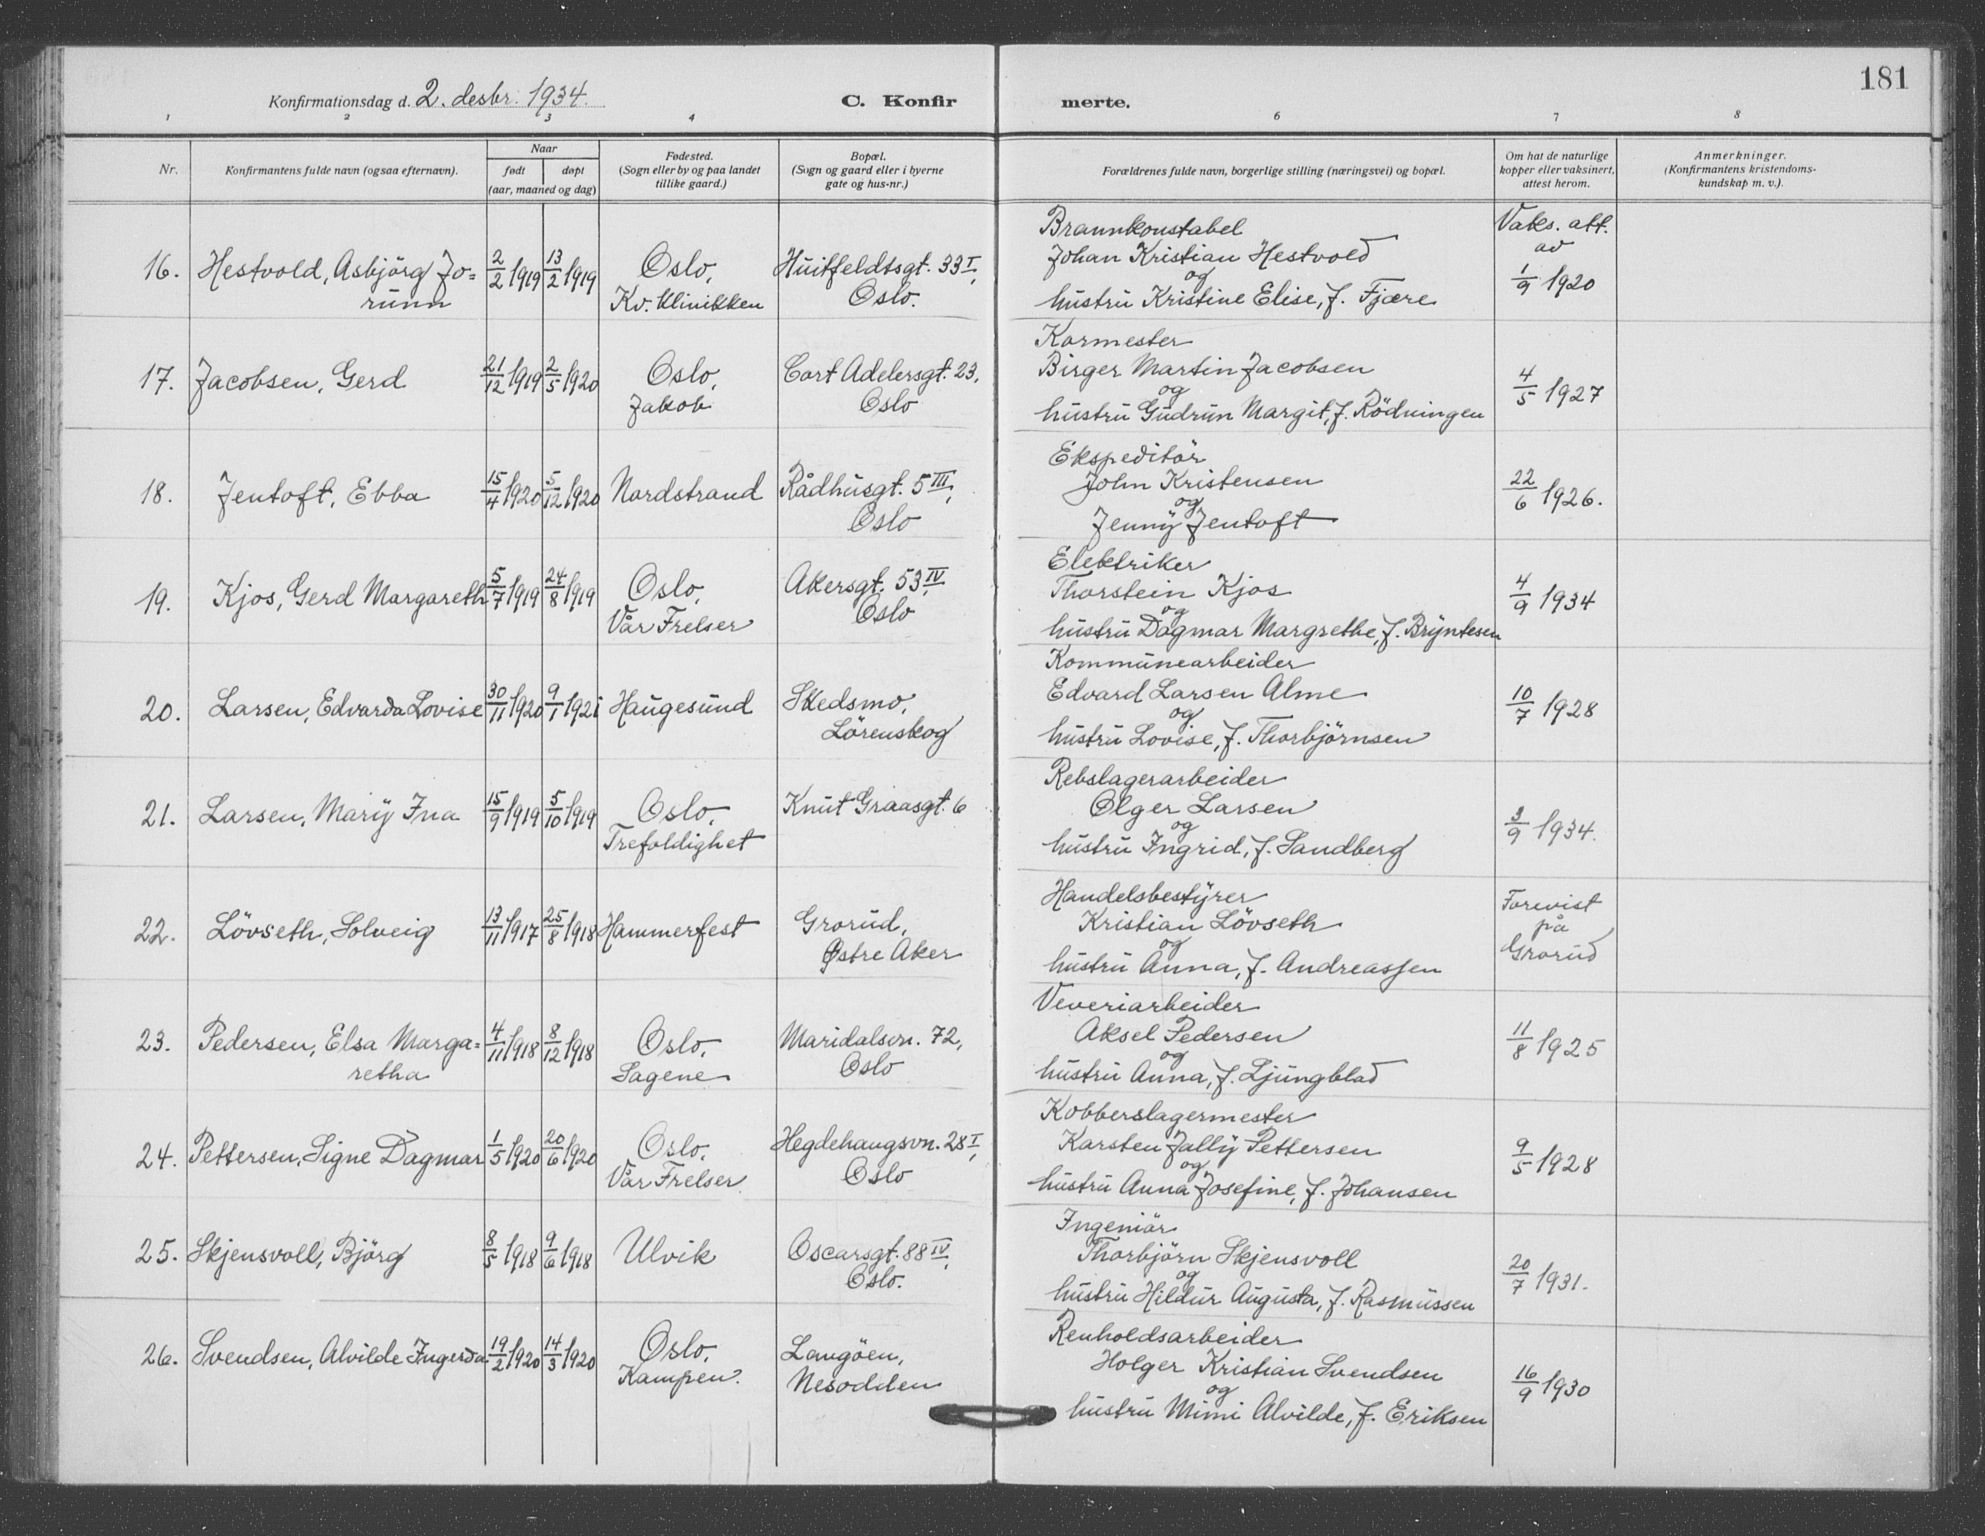 181
Konfirmationsdag d. 2. desbr. 1934.
C. Konfir merte.
1 2 3 4 6 7 8
Nr.
Konfirmantens fulde navn (ogsaa efternavn).
Naar
født døpt
(aar, maaned og dag)
Fødested.
(Sogn eller by og paa landet
tillike gaard.)
Bopæl.
(Sogn og gaard eller i byerne
gate og hus-nr.)
Forældrenes fulde navn, borgerlige stilling (næringsvei) og bopæl.
Om hat de naturlige
kopper eller vaksinert,
attest herom.
Anmerkninger.
(Konfirmantens kristendoms-
kundskap m. v.).
16. Hestvold, Asbjörg Jo=
runn
2/2 1919 13/2 1919
Oslo,
Kv. klinikken
Huitfeldtsgt. 33 I,
Oslo.
Brannkonstabel
Johan Kristian Hestvold
og
hustru Kristine Elise, f. Fjære
Vaks. att.
av
1/9 1920
17. Jacobsen, Gerd
21/12 1919 2/5 1920
Oslo,
Jakob
Cort Adelersgt. 23,
Oslo
Kormester
Birger Martin Jacobsen
og
hustru Gudrun Margit, f. Rödningen
4/5 1927
18. Jentoft, Ebba
15/4 1920 5/12 1920
Nordstrand
Rådhusgt. 5 III,
Oslo
Ekspeditör
John Kristensen
og
Jenny Jentoft
22/6 1926.
19. Kjos, Gerd Margareth
5/7 1919 24/8 1919
Oslo,
Vår Frelser
Akersgt. 53 IV,
Oslo
Elektriker
Thorstein Kjos
og
hustru Dagmar Margrethe, f. Bryntesen
4/9 1934
20. Larsen, Edvarda Lovise
30/11 1920 9/1 1921
Haugesund
Skedsmo,
Lörenskog
Kommunearbeider
Edvard Larsen Alme
og
hustru Lovise, f. Thorbjörnsen
10/7 1928
21. Larsen, Mary Ina
15/9 1919 5/10 1919
Oslo,
Trefoldighet
Knut Graasgt. 6
Rebslagerarbeider
Olger Larsen
og
hustru Ingrid, f. Sandberg
3/9 1934.
22. Lövseth, Solveig
13/11 1917 25/8 1918
Hammerfest
Grorud,
Østre Aker
Handelsbestyrer
Kristian Lövseth
og
hustru Anna, f. Andreassen
Forevist
på
Grorud
23. Pedersen, Elsa Marga=
retha
4/11 1918 8/12 1918
Oslo,
Sagene
Maridalsvn. 72,
Oslo
Veveriarbeider
Aksel Pedersen
og
hustru Anna, f. Ljungblad
11/8 1925
24. Pettersen, Signe Dagmar
1/5 1920 20/6 1920
Oslo,
Vår Frelser
Hegdehaugsvn. 28 I,
Oslo
Kobberslagermester
Karsten Jally Pettersen
og
hustru Anna Josefine, f. Johansen
9/5 1928
25. Skjensvoll, Björg
8/5 1918 9/6 1918
Ulvik
Oscarsgt. 88 IV,
Oslo.
Ingeniör
Thorbjörn Skjensvoll
og
hustru Hildur Augusta, f. Rasmussen
20/7 1931.
26. Svendsen, Alvilde Ingerda
19/2 1920 14/3 1920
Oslo,
Kampen.
Langöen,
Nesodden
Renholdsarbeider
Holger Kristian Svendsen
og
hustru Mimi Alvilde, f. Eriksen
16/9 1930